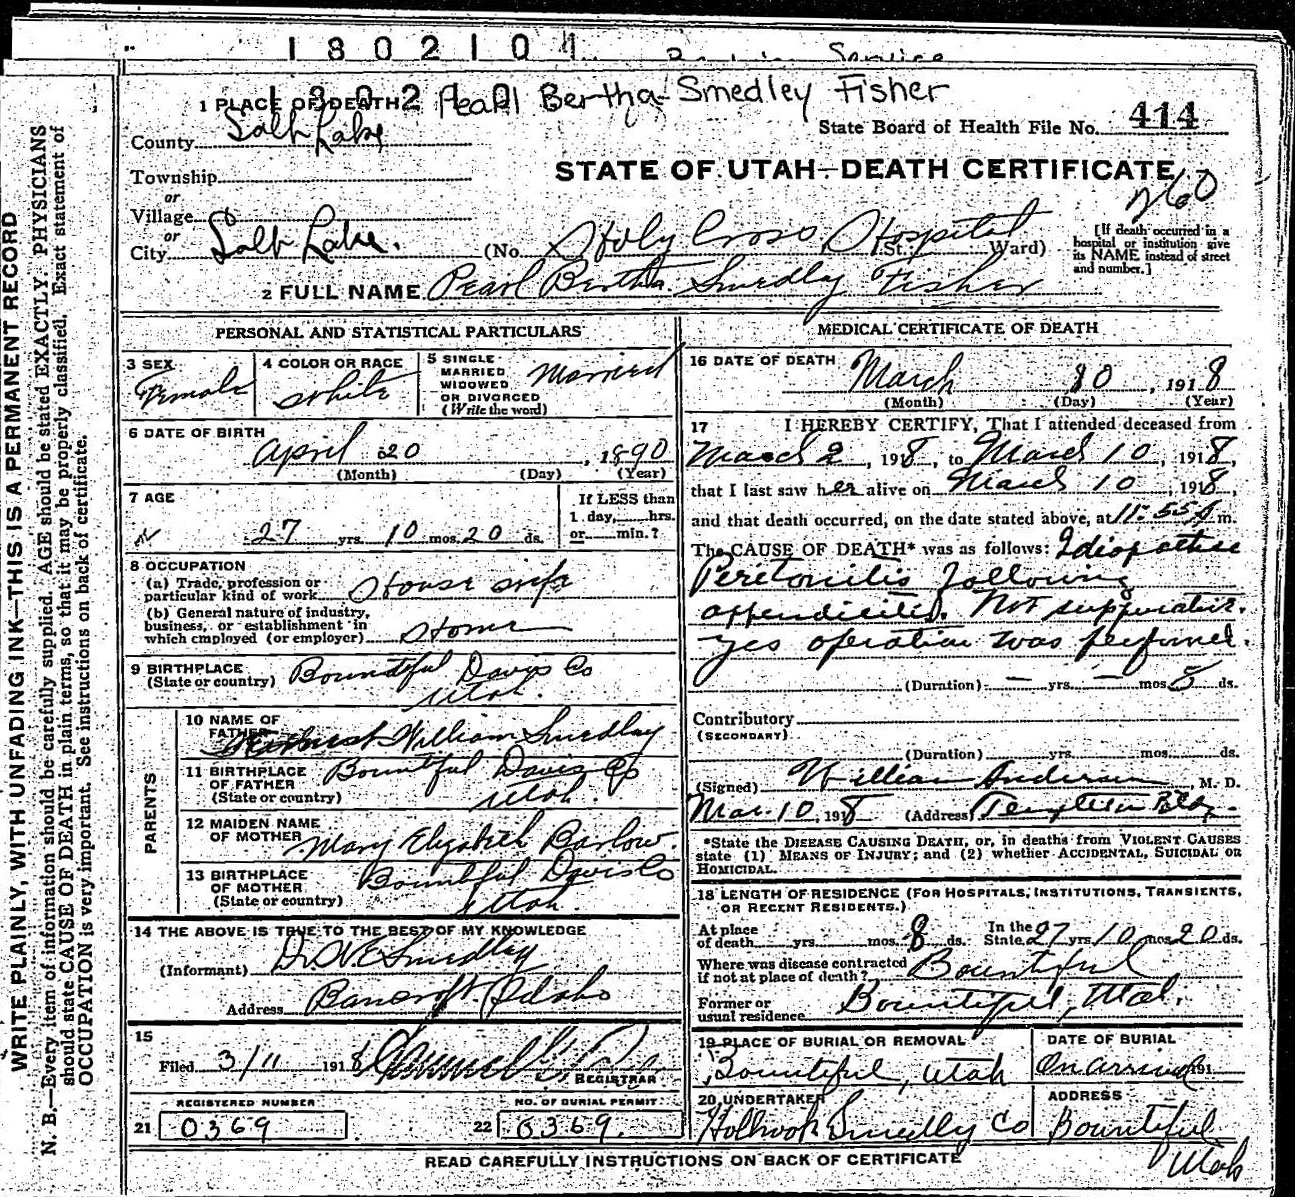 1802101
Service
1 PLACE OF DEATH Pearl Bertha Smedley Fisher
County Salt Lake
State Board of Health File No. 414
STATE OF UTAH—DEATH CERTIFICATE
Township
or
Village
or
City Salt Lake.
(No. Holy Cross Hospital St. Ward)
[If death occurred in a
hospital or institution give
its NAME instead of street
and number.]
2 FULL NAME Pearl Bertha Smedly Fisher
PERSONAL AND STATISTICAL PARTICULARS
3 SEX Female
4 COLOR OR RACE White
5 SINGLE
MARRIED
WIDOWED
OR DIVORCED
(Write the word)
Married
6 DATE OF BIRTH
April 20, 1890
(Month) (Day) (Year)
7 AGE
27 yrs. 10 mos. 20 ds.
If LESS than
1 day, hrs.
or min.?
8 OCCUPATION
(a) Trade, profession or
particular kind of work House wife
(b) General nature of industry,
business, or establishment in
which employed (or employer) Home
9 BIRTHPLACE
(State or country) Bountiful Davis Co
Utah.
PARENTS
10 NAME OF
FATHER William Smedley
11 BIRTHPLACE
OF FATHER
(State or country)
Bountiful Davis Co
Utah.
12 MAIDEN NAME
OF MOTHER Mary Elizabeth Barlow.
13 BIRTHPLACE
OF MOTHER
(State or country)
Bountiful Davis Co
Utah.
14 THE ABOVE IS TRUE TO THE BEST OF MY KNOWLEDGE
(Informant) Smedley
Address Bancroft Idaho
15
Filed 3/11 1918
REGISTRAR
REGISTERED NUMBER
21 0369
NO. OF BURIAL PERMIT
22 0369.
MEDICAL CERTIFICATE OF DEATH
16 DATE OF DEATH
March 10, 1918
(Month) (Day) (Year)
17 I HEREBY CERTIFY, That I attended deceased from
March 2, 1918, to March 10, 1918,
that I last saw her alive on March 10, 1918,
and that death occurred, on the date stated above, at 11:55 A m.
The CAUSE OF DEATH* was as follows: Idiopathic
Peritonitis following
appendicitis. Not suppurative.
yes operation was performed.
(Duration) — yrs. — mos. 5 ds.
Contributory
(SECONDARY)
(Duration) yrs. mos. ds.
(Signed) William Anderson, M. D.
Mar. 10, 1918 (Address) Templeton Bldg.
*State the DISEASE CAUSING DEATH, or, in deaths from VIOLENT CAUSES
state (1) MEANS OF INJURY; and (2) whether ACCIDENTAL, SUICIDAL OR
HOMICIDAL.
18 LENGTH OF RESIDENCE (FOR HOSPITALS, INSTITUTIONS, TRANSIENTS,
OR RECENT RESIDENTS.)
At place
of death yrs. mos. 8 ds.
In the
State 27 yrs. 10 mos. 20 ds.
Where was disease contracted
if not at place of death? Bountiful
Former or
usual residence Bountiful, Utah.
19 PLACE OF BURIAL OR REMOVAL
Bountiful, Utah
DATE OF BURIAL
On arrival 191
20 UNDERTAKER
Holbrook Smedly Co
ADDRESS
Bountiful
Utah
READ CAREFULLY INSTRUCTIONS ON BACK OF CERTIFICATE
WRITE PLAINLY, WITH UNFADING INK—THIS IS A PERMANENT RECORD
N. B.—Every item of information should be carefully supplied. AGE should be stated EXACTLY. PHYSICIANS
should state CAUSE OF DEATH in plain terms, so that it may be properly classified. Exact statement of
OCCUPATION is very important. See instructions on back of certificate.